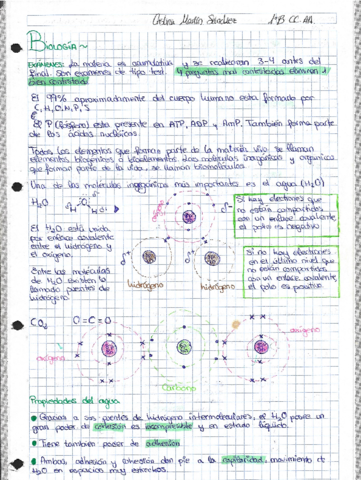 Ainhoa Martín Sánchez 1ºB CC.AA.
BIOLOGÍA~
EXÁMENES: La materia es acumulativa y se realizarán 3-4 antes del
final. Son exámenes de tipo test. 4 preguntas mal contestadas eliminan 1
bien contestada.
El 99% aproximadamente del cuerpo humano está formado por
C, H, O, N, P, S
El P (fósforo) está presente en ATP, ADP y AMP. También forma parte
de los ácidos nucleicos.
Todos los elementos que forman parte de la materia viva se llaman
elementos biogénicos o bioelementos. Las moléculas inorgánicas y orgánicas
que forman parte de la vida, se llaman biomoléculas.
Una de las moléculas inorgánicas más importantes es el agua (H₂O)
H₂O
oxígeno
Si hay electrones que
no están compartidos
con un enlace covalente
el polo es negativo
El H₂O está unida
por enlace covalente
entre el hidrógeno y
el oxígeno.
Si no hay electrones
en el último nivel que
no están compartidos
con un enlace covalente,
el polo es positivo
Entre las moléculas
de H₂O existen lo
llamado puentes de
hidrógeno
hidrógeno
hidrógeno
CO₂
O=C=O
oxígeno
oxígeno
Carbono
Propiedades del agua
Gracias a sus puentes de hidrógeno intermoleculares, el H₂O posee un
gran poder de cohesión es incompresible y en estado líquido.
Tiene también poder de adhesión
Ambas, adhesión y cohesión dan pie a la capilaridad, movimiento de
H₂O en espacios muy estrechos.